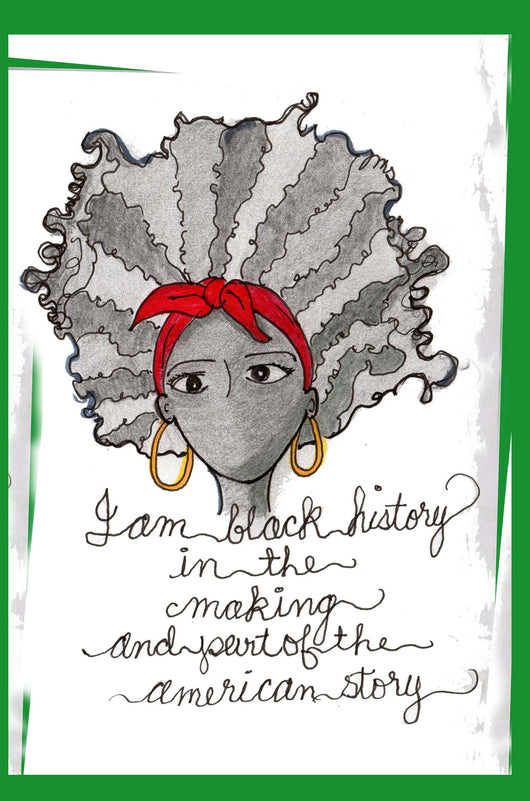 I am black history
in the
making
and part of the
american story